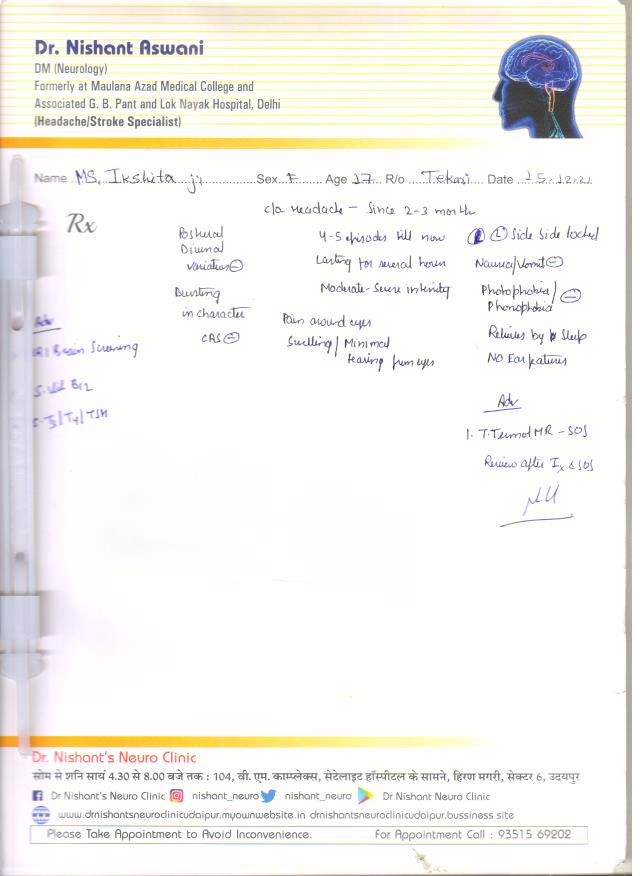 Dr. Nishant Aswani
DM (Neurology)
Formerly at Maulana Azad Medical College and
Associated G. B. Pant and Lok Nayak Hospital, Delhi
(Headache/Stroke Specialist)
Name MS. Ikshita ji Sex F Age 17 R/o Date 15.12.21
Rx
c/o Headache - Since 2-3 month
Postural
Diurnal
variation ⊖
Bursting
in character
CAS ⊖
4-5 episodes till now
Lasting for several hours
Moderate-Severe intensity
Pain around eyes
Swelling / Minimal
tearing from eyes
(L) Side side locked
Nausea/Vomit ⊖
Photophobia/
Phonophobia ⊖
Relieves by Sleep
NO Ear features
Adv
MRI Brain Screening
S. Vit B12
S. T3/T4/TSH
Adv
1. T. MR - SOS
Review after Ix & SOS
Dr. Nishant's Neuro Clinic
सोम से शनि सायं 4.30 से 8.00 बजे तक : 104, वी. एम. काम्प्लेक्स, सेटेलाइट हॉस्पीटल के सामने, हिरण मगरी, सेक्टर 6, उदयपुर
Dr Nishant's Neuro Clinic nishant_neuro nishant_neuro Dr Nishant Neuro Clinic
www.drnishantsneuroclinicudaipur.myownwebsite.in drnishantsneuroclinicudaipur.bussiness site
Please Take Appointment to Avoid Inconvenience. For Appointment Call : 93515 69202